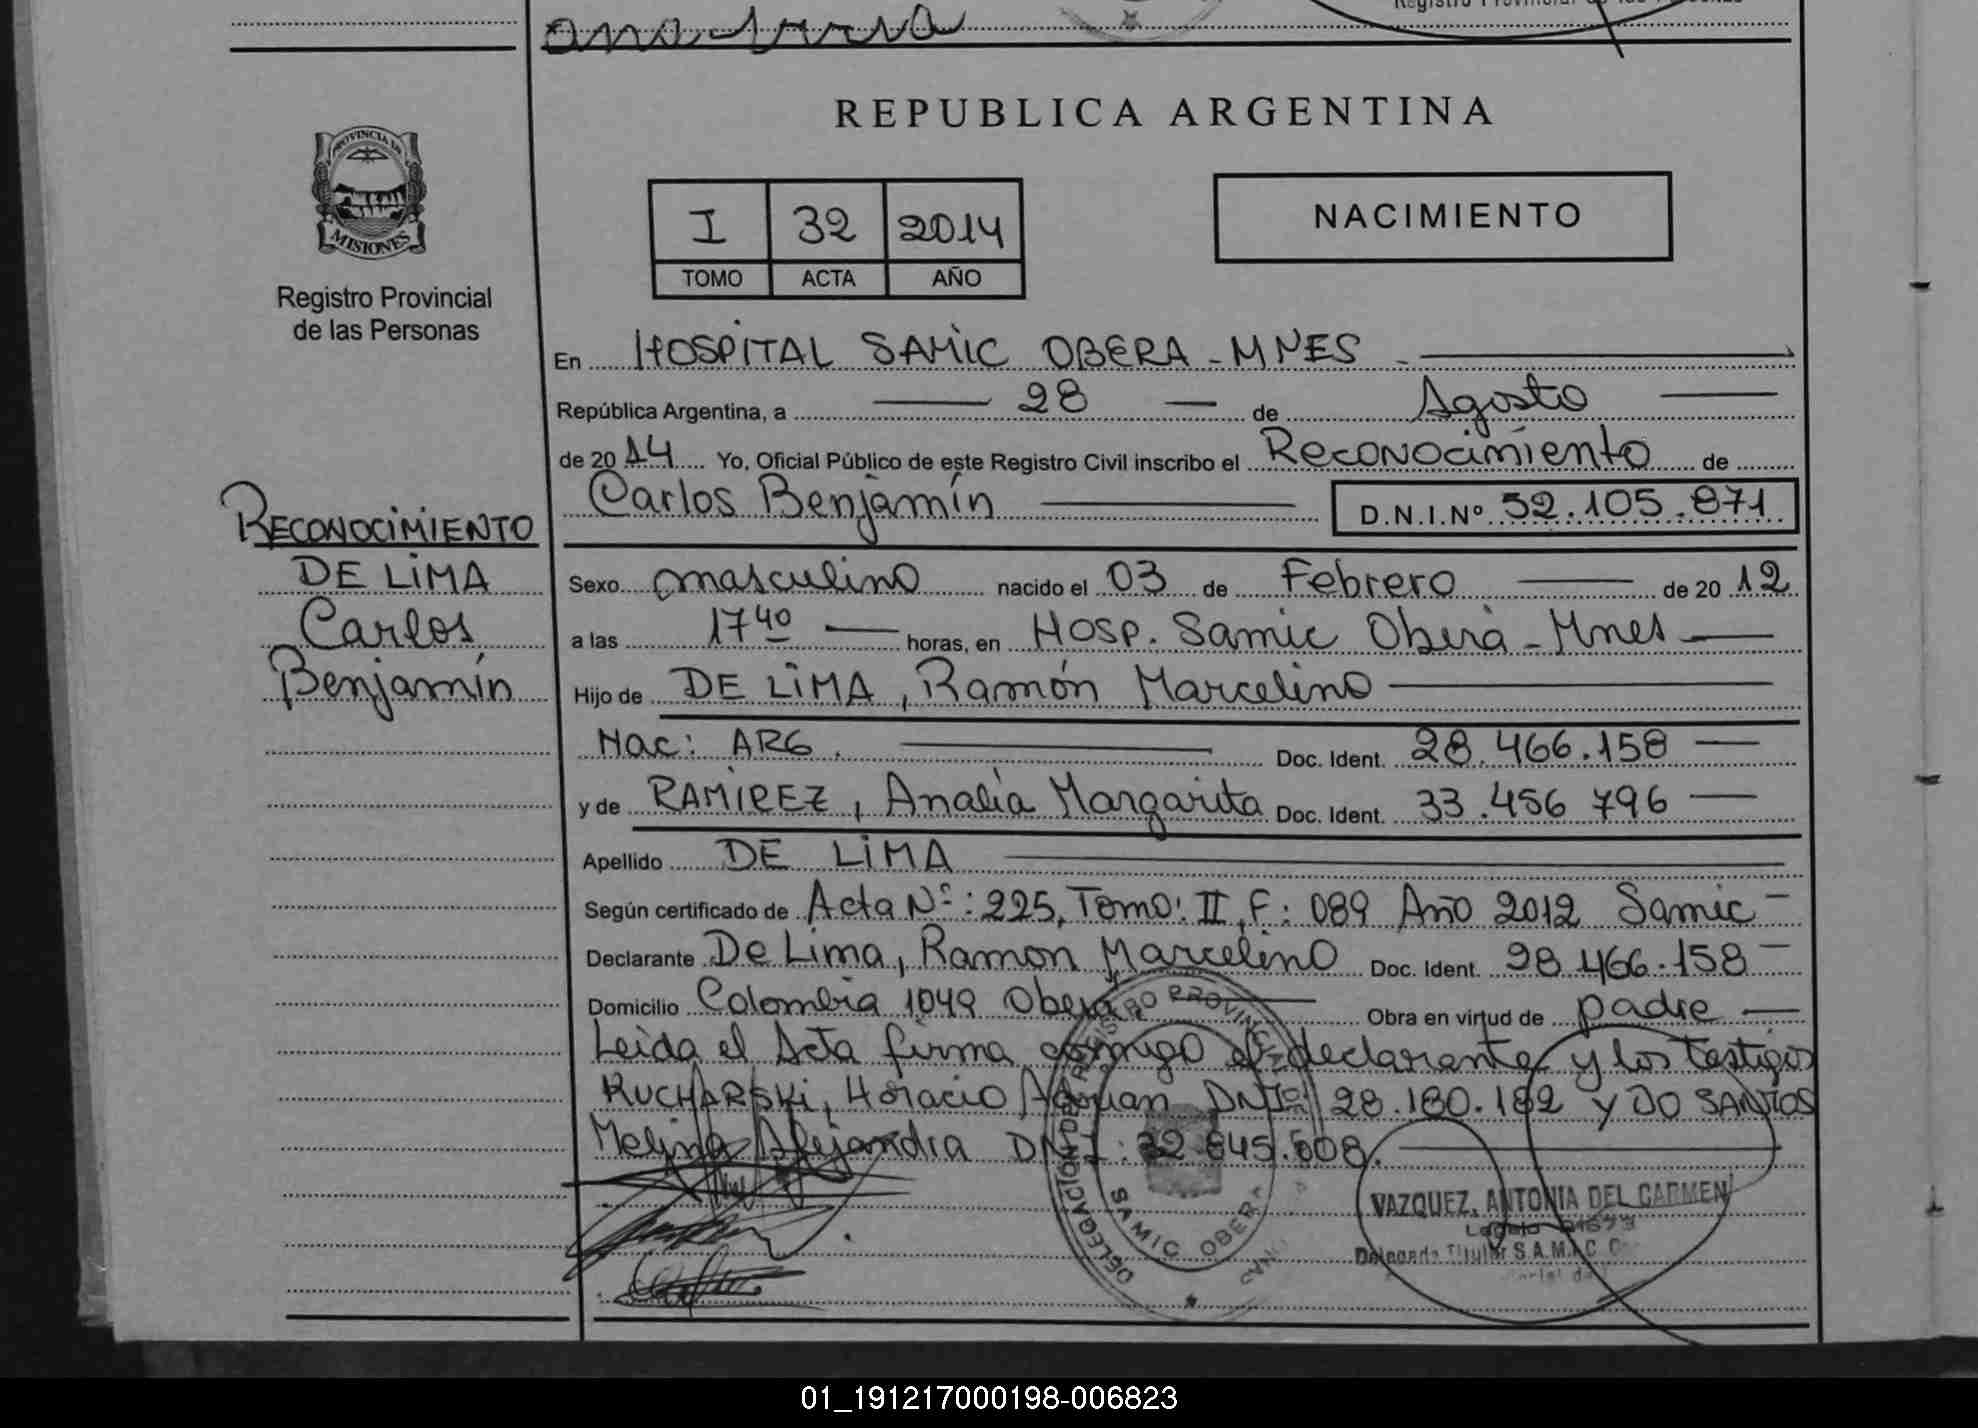 PROVINCIA DE
MISIONES
Registro Provincial
de las Personas
REPUBLICA ARGENTINA
I 32 2014
TOMO ACTA AÑO
NACIMIENTO
En HOSPITAL SAMIC OBERA - MNES -
República Argentina, a 28 de Agosto
de 2014 Yo, Oficial Público de este Registro Civil inscribo el Reconocimiento de
Carlos Benjamín D.N.I.Nº 52.105.871
RECONOCIMIENTO
DE LIMA
Carlos
Benjamín
Sexo masculino nacido el 03 de Febrero de 2012
a las 17 40 horas, en Hosp. Samic Oberá - Mnes
Hijo de DE LIMA, Ramón Marcelino
Nac: ARG. Doc. Ident. 28.466.158
y de RAMIREZ, Analía Margarita Doc. Ident. 33.456 796
Apellido DE LIMA
Según certificado de Acta Nº: 225, Tomo: II, F: 089 Año 2012 Samic
Declarante De Lima, Ramon Marcelino Doc. Ident. 28 466.158
Domicilio Colombia 1049 Oberá Obra en virtud de padre
Leida el Acta firma conmigo el declarante y los testigos
KUCHARSKI, Horacio Adrian DNI 28.180.182 y DO SANTOS
Melina Alejandra DNI: 32.845.608.
SAMIC OBERA
VAZQUEZ, ANTONIA DEL CARMEN
Legajo
Delegada Titular S.A.M.I.C.
01_191217000198-006823